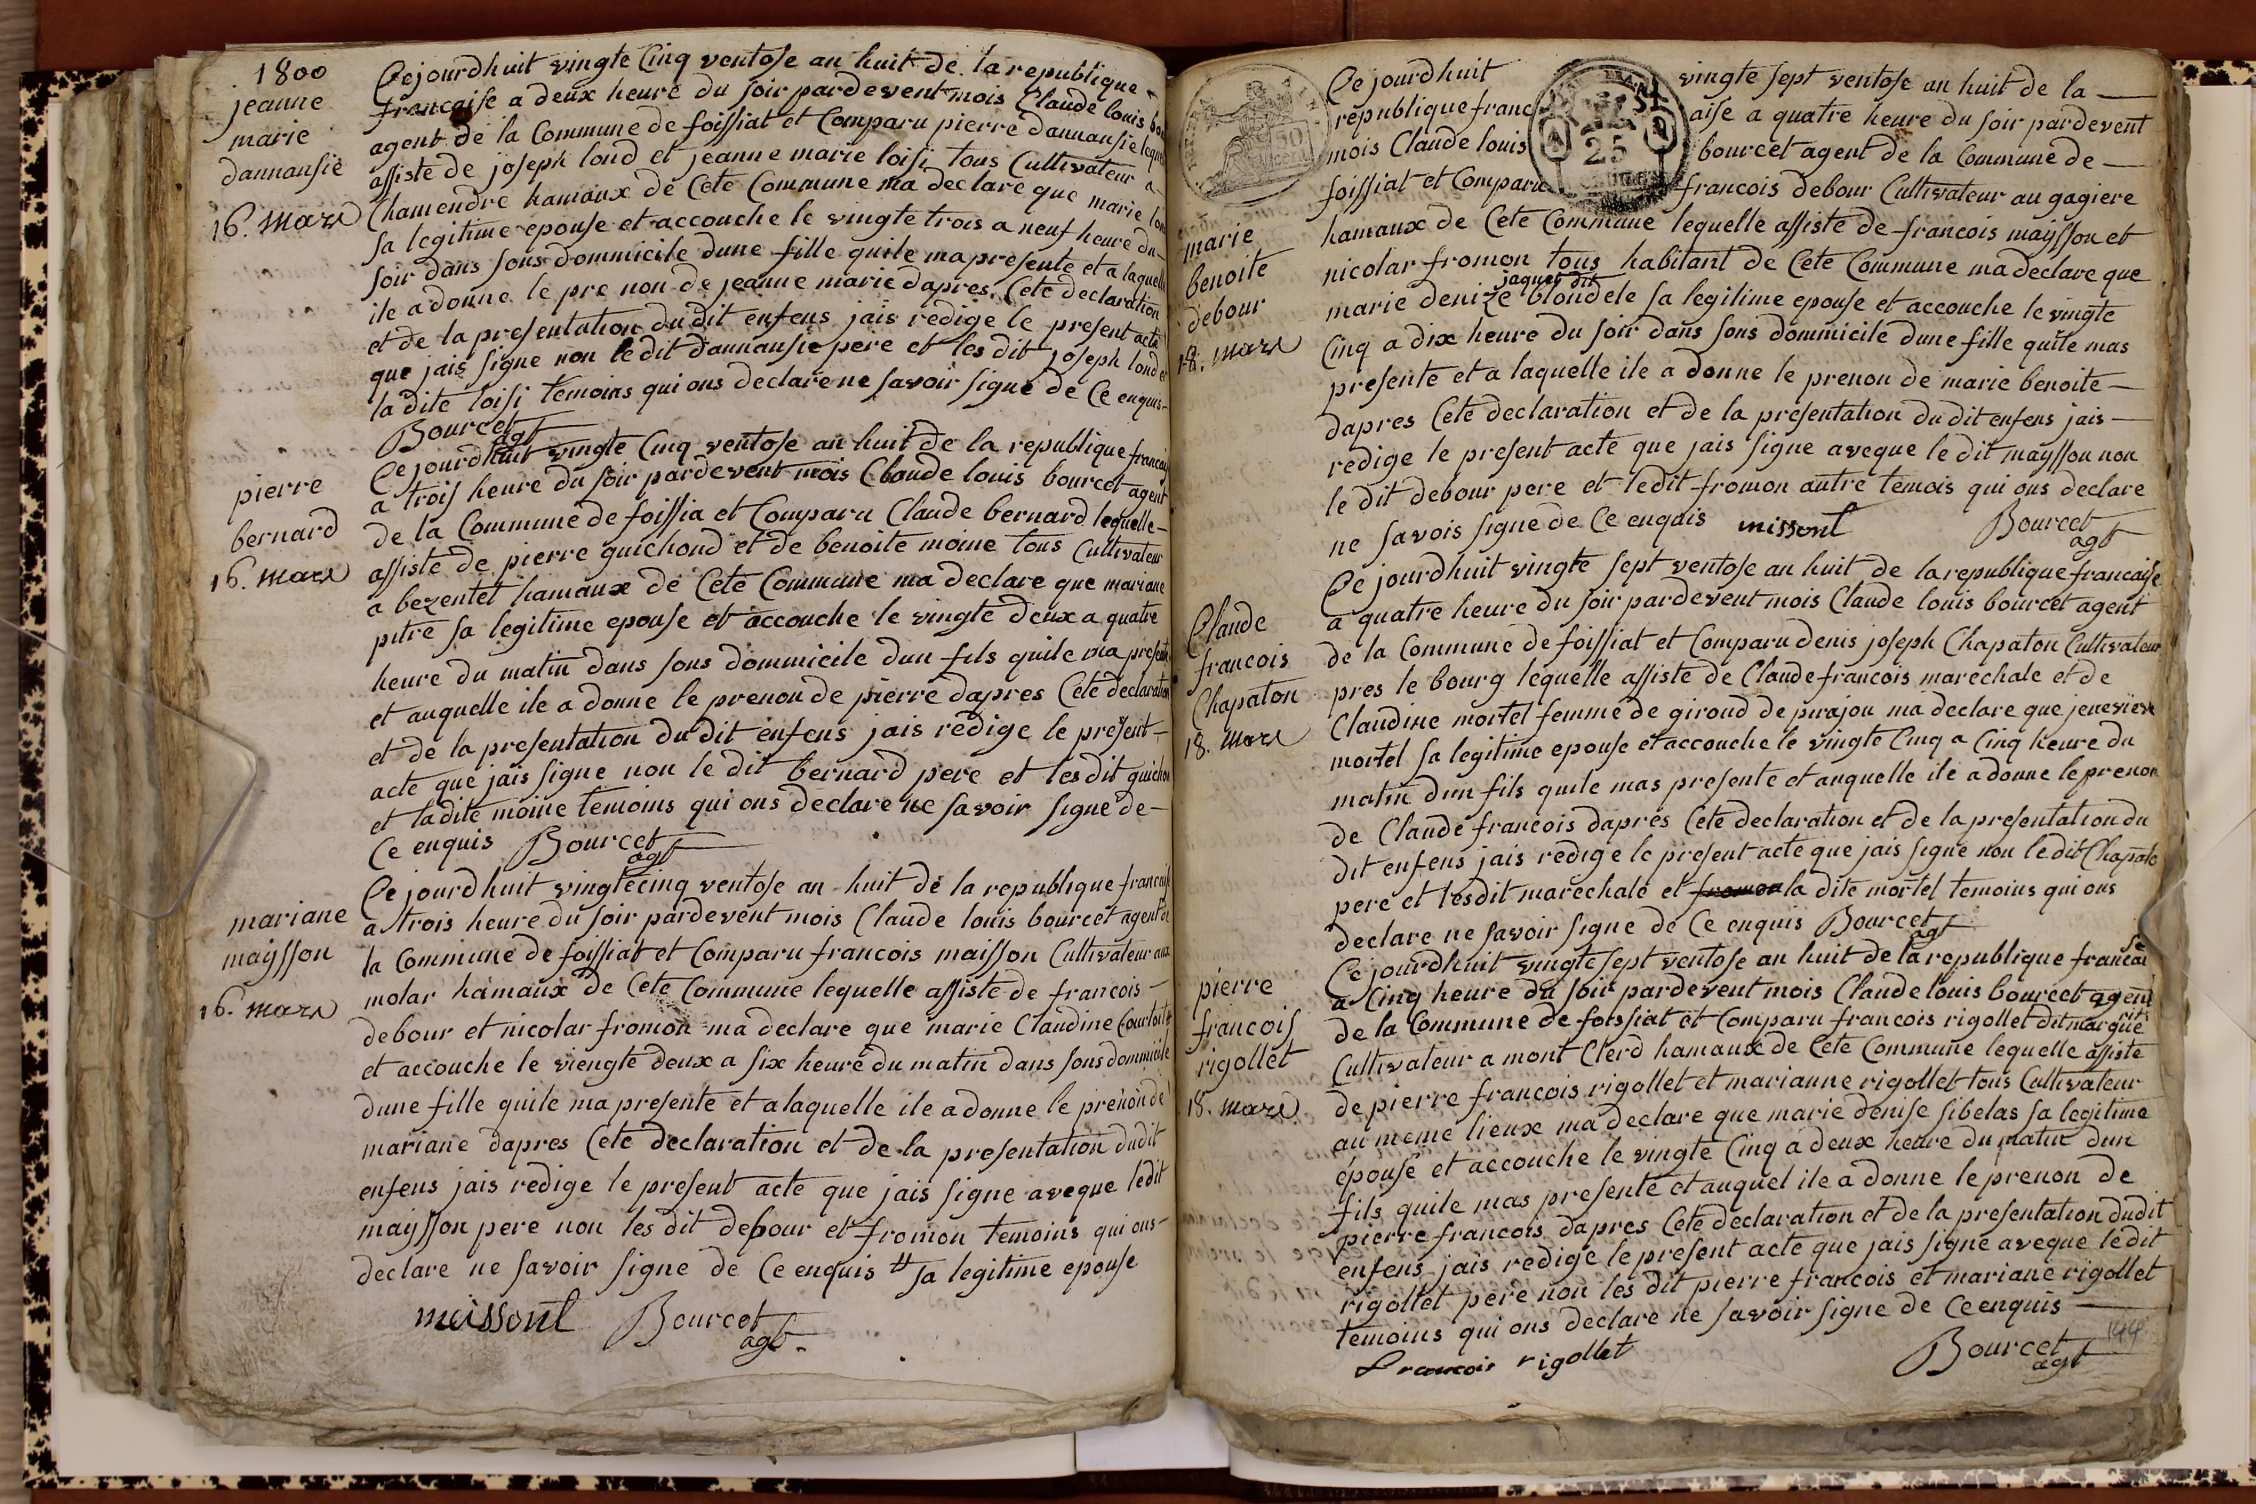 1800
jeanne
marie
dannansie
16. mars
Cejourdhuit vingte Cinq ventose an huit de la republique
francaise a deux heure du soir pardevent mois Claude louis
agent de la Commune de foissiat et Comparu pierre dannansie
assiste de joseph lond et jeanne marie loisi tous Cultivateur a
Chamendre hamaux de Cete Commune ma declare que marie
sa legitime epouse et accouche le vingte trois a neuf heure du
soir dans sons dommicile dune fille quile ma presente et a laquelle
ile a donne le pre non de jeanne marie dapres Cete declaration
et de la presentation du dit enfens jais redige le present acte
que jais signe non le dit dannansie pere et les dit joseph lond et
la dite loisi temoins qui ons declare ne savoir signe de Ce enquis
Bourcet
agt
pierre
bernard
16. mars
Ce jourdhuit vingte Cinq ventose an huit de la republique
a trois heure du soir pardevent mois Claude louis bourcet agent
de la Commune de foissia et Comparu Claude bernard lequelle
assiste de pierre guichond et de benoite moine tous Cultivateur
a bezentet hamaux de Cete Commune ma declare que mariane
pitre sa legitime epouse et accouche le vingte deux a quatre
heure du matin dans sons dommicile dun fils quile ma presente
et auquelle ile a donne le prenon de pierre dapres Cete declaration
et de la presentation du dit enfens jais redige le present
acte que jais signe non le dit bernard pere et les dit
et ladite moine temoins qui ons declare ne savoir signe de
Ce enquis Bourcet
agt
mariane
maysson
16. mars
Ce jourdhuit vingtecinq ventose an huit de la republique
a trois heure du soir pardevent mois Claude louis bourcet agent de
la Commune de foissiat et Comparu francois maisson Cultivateur aux
molar hamaux de Cete Commune lequelle assiste de francois
debour et nicolar fromon ma declare que marie Claudine
et accouche le viengte deux a six heure du matin dans sons dommicile
dune fille quile ma presente et a laquelle ile a donne le prenon de
mariane dapres Cete declaration et de la presentation dudit
enfens jais redige le present acte que jais signe aveque ledit
maysson pere non les dit debour et fromon temoins qui ons
declare ne savoir signe de Ce enquis # sa legitime epouse
maissont Bourcet
agt.
50
Cent
25
51
marie
benoite
debour
18. mars
Ce jourdhuit vingte sept ventose an huit de la
republique franc aise a quatre heure du soir pardevent
mois Claude louis bourcet agent de la Commune de
foissiat et Comparu francois debour Cultivateur au gagiere
hamaux de Cete Commune lequelle assiste de francois maysson et
nicolar fromon tous habitant de Cete Commune ma declare que
jaquet dit
marie denize blondele sa legitime epouse et accouche le vingte
Cinq a dix heure du soir dans sons dommicile dune fille quile mas
presente et a laquelle ile a donne le prenon de marie benoite
dapres Cete declaration et de la presentation du dit enfens jais
redige le present acte que jais signe aveque le dit maysson non
le dit debour pere et ledit fromon autre temois qui ons declare
ne savois signe de Ce enquis missont Bourcet
agt
Claude
francois
Chapaton
18. mars
Ce jourdhuit vingte sept ventose an huit de la republique francaise
a quatre heure du soir pardevent mois Claude louis bourcet agent
de la Commune de foissiat et Comparu denis joseph Chapaton Cultivateur
pres le bourg lequelle assiste de Claude francois marechale et de
Claudine mortel femme de giroud de pirajou ma declare que jenevieve
mortel sa legitime epouse et accouche le vingte Cinq a Cinq heure du
matin dun fils quile mas presente et auquelle ile a donne le prenon
de Claude francois dapres Cete declaration et de la presentation du
dit enfens jais redige le present acte que jais signe non le dit Chapato
pere et lesdit marechale et fromon la dite mortel temoins qui ons
declare ne savoir signe de Ce enquis Bourcet
agt
pierre
francois
rigollet
18. mars
Ce jourdhuit vingte sept ventose an huit de la republique francaise
a Cinq heure du soir pardevent mois Claude louis bourcet agent
de la Commune de foissiat et Comparu francois rigollet dit
Cultivateur a mont Clerd hamaux de Cete Commune lequelle assiste
de pierre francois rigollet et marianne rigollet tous Cultivateur
au meme lieux ma declare que marie denise sibelas sa legitime
epouse et accouche le vingte Cinq a deux heure du matin dun
fils quile mas presente et auquel ile a donne le prenon de
pierre francois dapres Cete declaration et de la presentation dudit
enfens jais redige le present acte que jais signe aveque ledit
rigollet pere non les dit pierre francois et mariane rigollet
temoins qui ons declare ne savoir signe de Ce enquis
francois rigollet Bourcet
agt